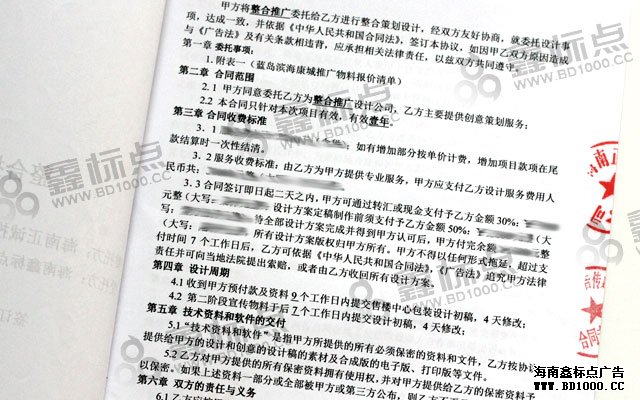 甲方将整合推广委托给乙方进行整合策划设计，经双方友好协商，就委托设计事
项，达成一致，并依据《中华人民共和国合同法》，签订本协议，如因甲乙双方原因造成
与《广告法》及有关条款相违背，应承担相关法律责任，以兹双方共同遵守。
第一章 委托事项：
1. 附表一（蓝岛滨海康城推广物料报价清单）
第二章 合同范围
2.1 甲方同意委托乙方为整合推广设计公司，乙方主要提供创意策划服务；
2.2 本合同只针对本次项目有效，有效壹年。
第三章 合同收费标准
3.1 ：如有增加部分按单价计费，增加项目款项在尾
款结算时一次性结清。
3.2 服务收费标准：由乙方为甲方提供专业服务，甲方应支付乙方设计服务费用人
民币共：
3.3 合同签订即日起二天之内，甲方可通过转汇或现金支付予乙方金额 30%：
元整（大写： 设计方案定稿制作前须支付予乙方金额 50%： （大
写： 待全部设计方案完成并得到甲方认可后，甲方付完余额
（大写： 所有设计方案版权归甲方所有。甲方不得以任何形式拖延，超过支
付时间 7 个工作日后，乙方可依据《中华人民共和国合同法》，《广告法》追究甲方法律
责任并可向当地法院提出索赔，或者由乙方收回所有设计方案。
第四章 设计周期
4.1 收到甲方预付款及资料 9 个工作日内提交售楼中心包装设计初稿，4 天修改；
4.2 第二阶段宣传物料于后 7 个工作日内提交设计初稿，4 天修改；
第五章 技术资料和软件的交付
5.1 “技术资料和软件”是指甲方所提供的所有必须保密的资料和文件，乙方按协议
提供给甲方的设计和创意的设计稿的素材及合成版的电子版、打印版等文件。
5.2 乙方对甲方提供的所有保密资料拥有使用权，并对甲方提供给乙方的保密资料予
以保密。如果上述资料一部分或全部被甲方或第三方公布，则乙方
第六章 双方的责任与义务
6.1 乙方应按
鑫标点
WWW.BD1000.CC
海南鑫标点广告
WWW.BD1000.CC